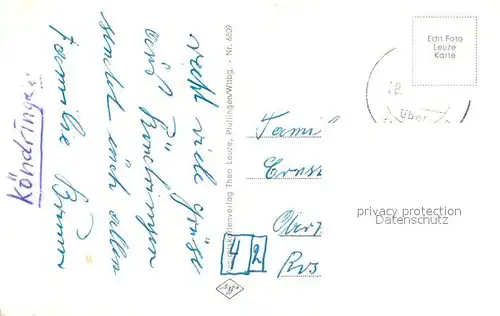 recht viele Grüße
aus Köndringen
sendet euch allen
Familie
Köndringen
Kunstkartenverlag Theo Leuze, Pfullingen/Wttbg. - Nr. 6809
Echt Foto
Leuze
Karte
Über
Fami
Ernst
Ober
42
privacy protection
Datenschutz